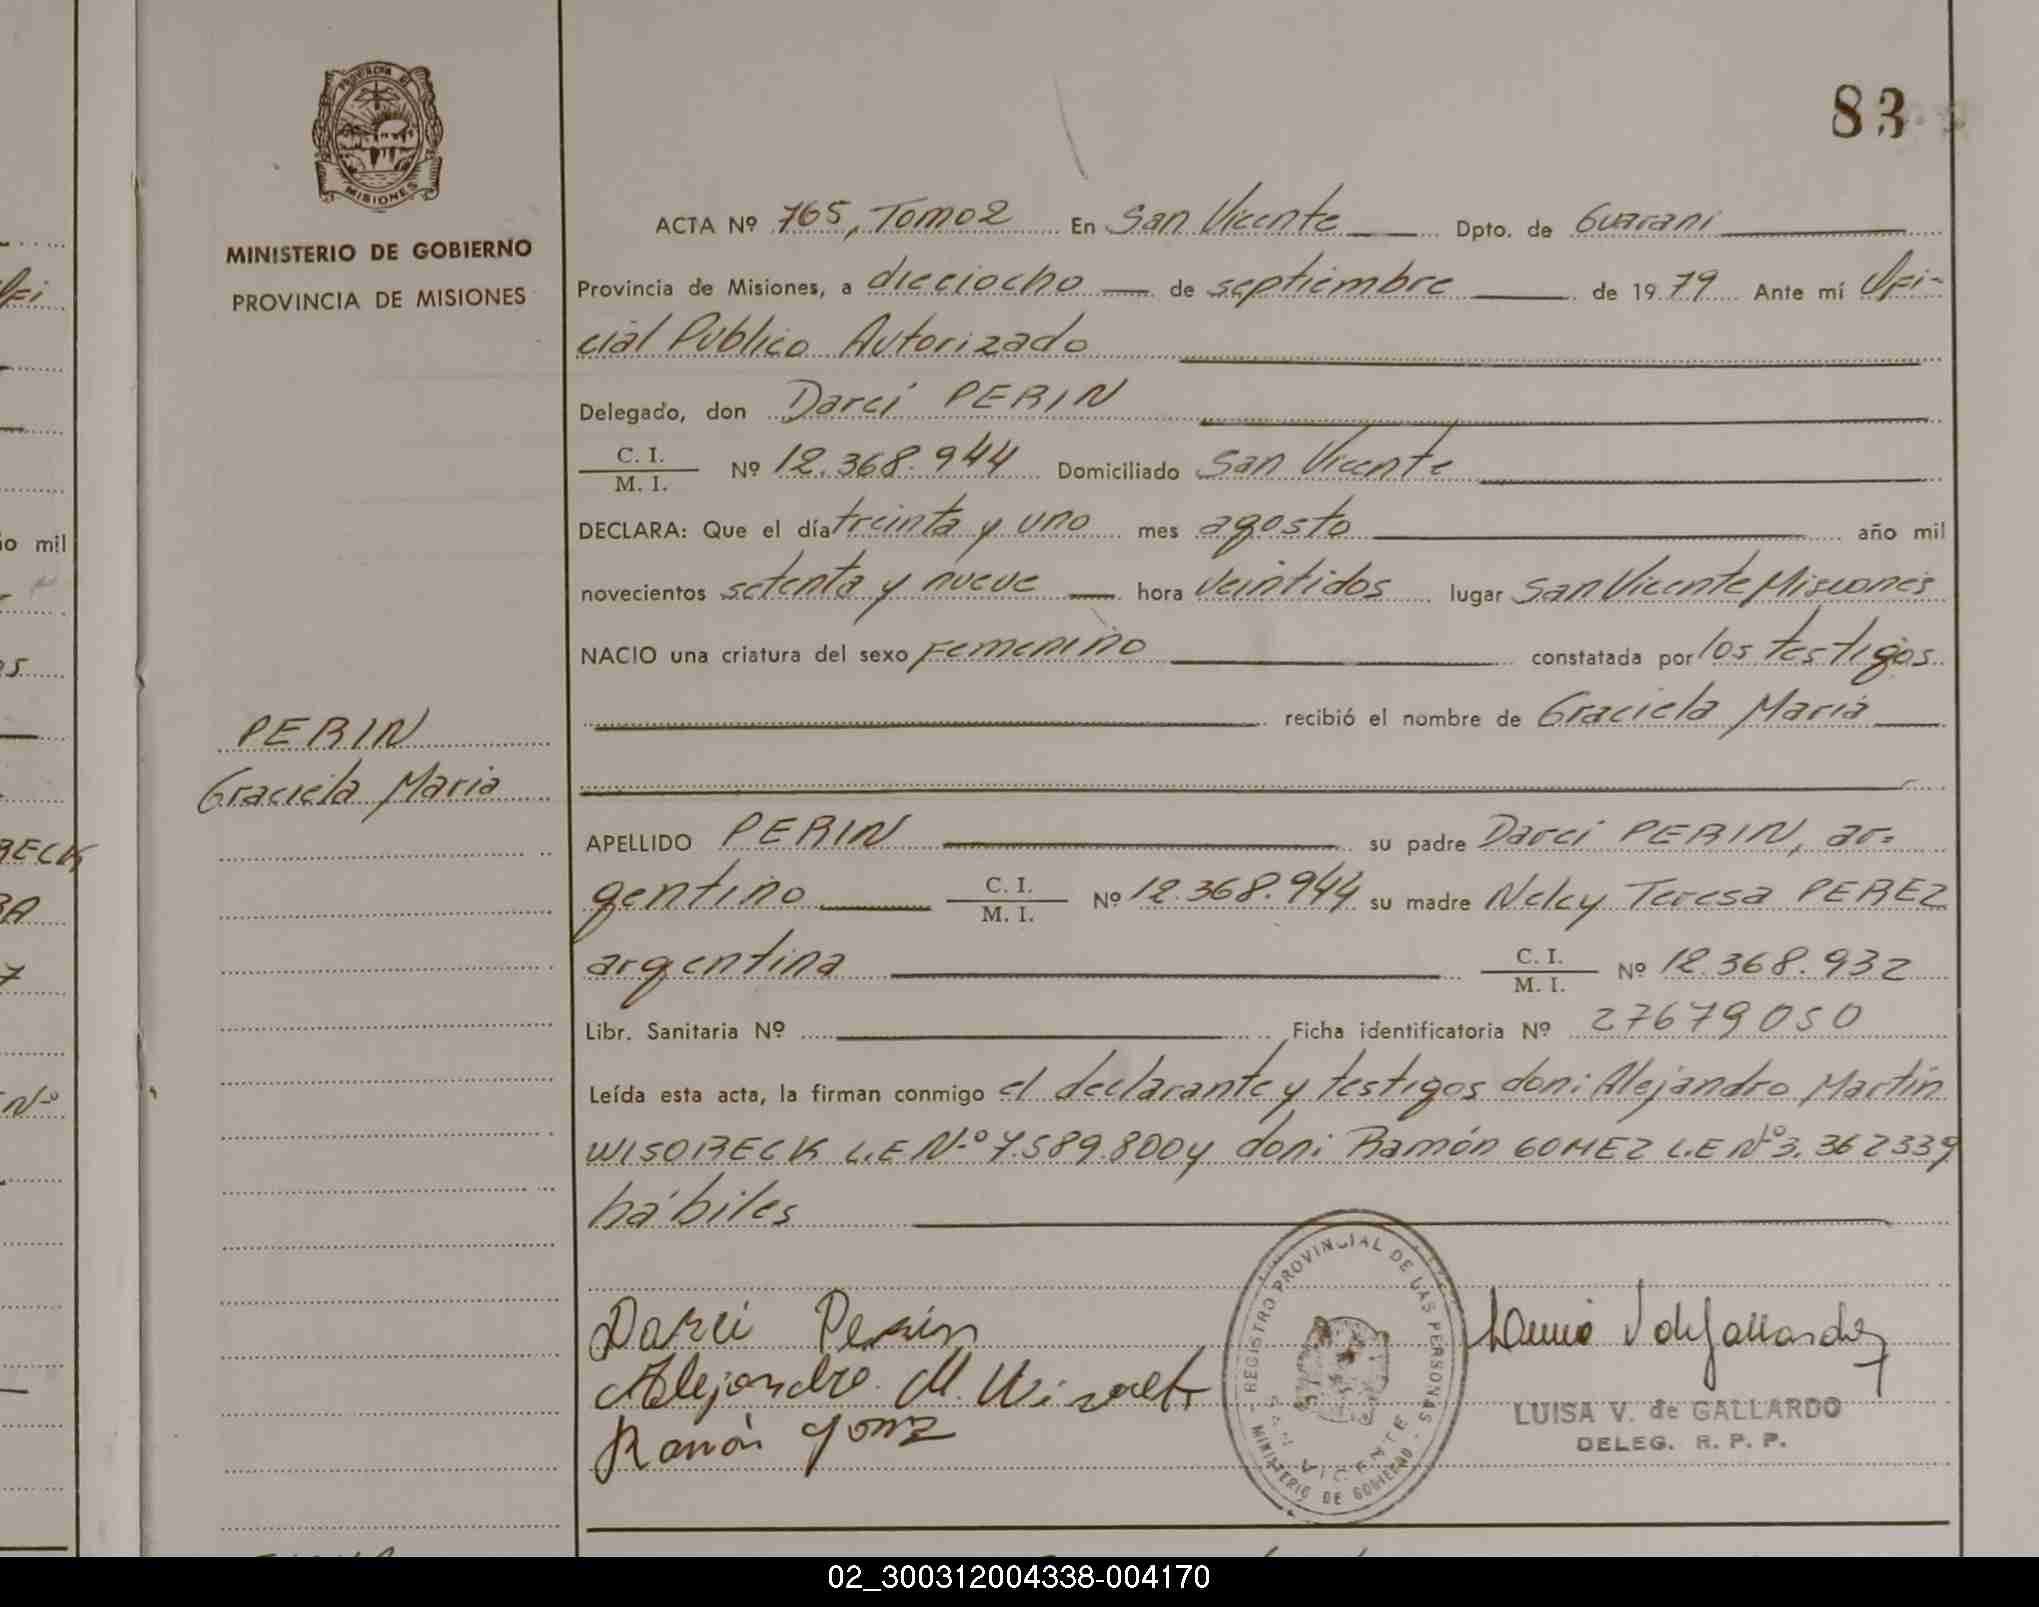 83
PROVINCIA DE
MISIONES
MINISTERIO DE GOBIERNO
PROVINCIA DE MISIONES
PERIN
Graciela Maria
ACTA Nº 765, Tomo 2 En San Vicente Dpto. de Guarani
Provincia de Misiones, a dieciocho de septiembre de 1979 Ante mí Ofi-
cial Público Autorizado
Delegado, don Darci PERIN
C. I.
M. I. Nº 12.368.944 Domiciliado San Vicente
DECLARA: Que el día treinta y uno mes agosto año mil
novecientos setenta y nueve hora veintidos lugar San Vicente Misiones
NACIO una criatura del sexo Femenino constatada por los testigos
recibió el nombre de Graciela Maria
APELLIDO PERIN su padre Darci PERIN, ar-
gentino C. I. M. I. Nº 12.368.944 su madre Nelcy Teresa PEREZ
argentina C. I. M. I. Nº 12.368.932
Libr. Sanitaria Nº Ficha identificatoria Nº 27679050
Leída esta acta, la firman conmigo el declarante y testigos don: Alejandro Martin
WISOBECK L.E Nº 7.589.800 y don: Ramón GOMEZ L.E Nº 3.362339
hábiles
Darci Perin
Alejandro M.
Ramón
REGISTRO PROVINCIAL DE LAS PERSONAS
SAN VICENTE
MINISTERIO DE GOBIERNO
LUISA V. de GALLARDO
DELEG. R. P. P.
02_300312004338-004170